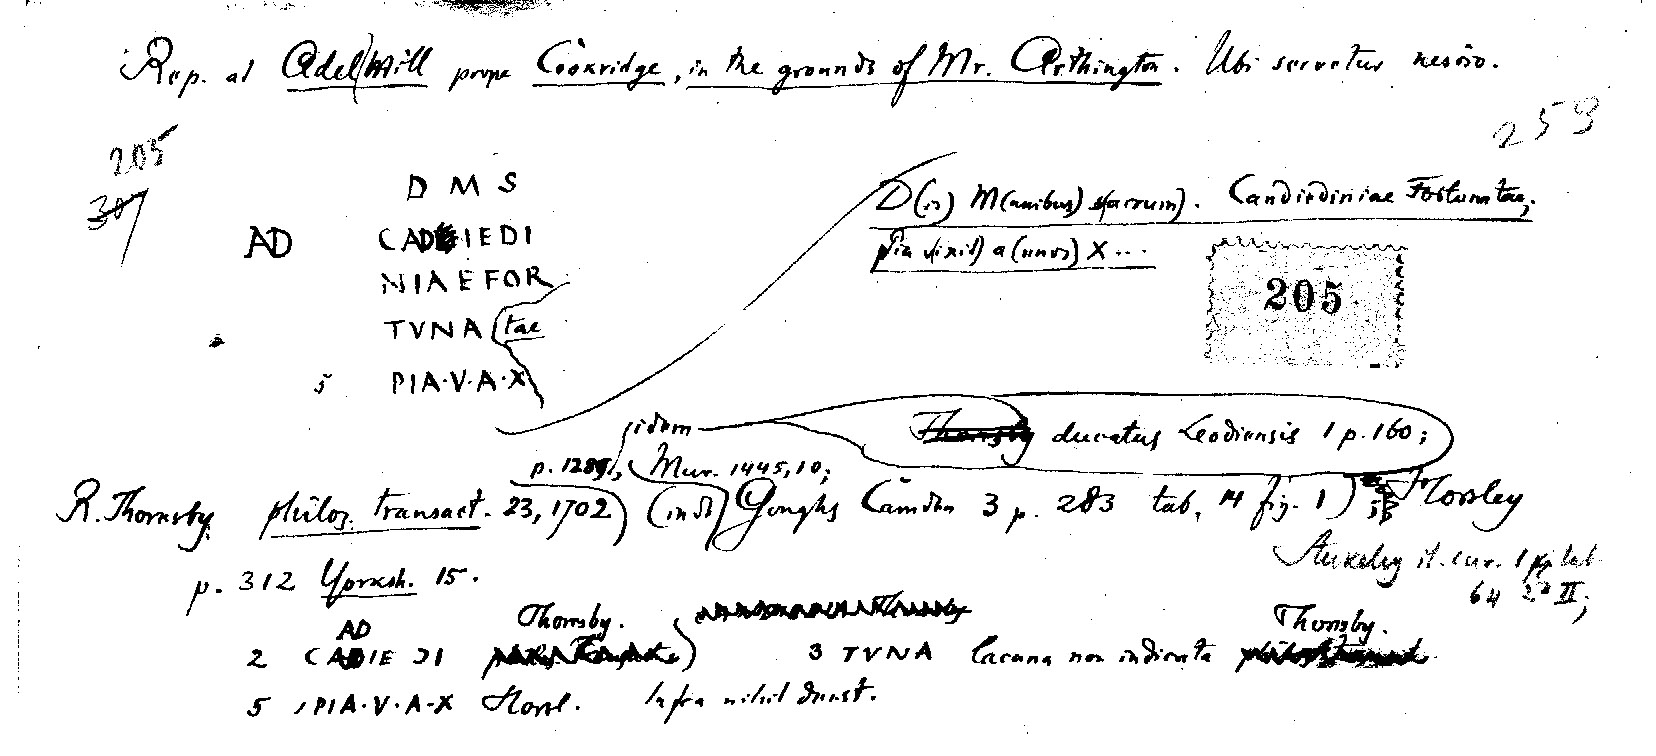 Rep. at Adel Mill prope Cookridge, in the grounds of Mr. Arthington. Ubi servetur nescio.
253
205
D M S
AD CADIEDI
NIAEFOR
TVNA tae
5 PIA·V·A·X
D(is) M(anibus) s(acrum). Candiediniae Fortunatae,
pia v(ixit) a(nnos) X...
205
idem ducatus Leodiensis 1 p. 160;
p. 1285, Mur. 1445,10;
R. Thornsby philos. transact. 23, 1702 (inde Goughs Camden 3 p. 283 tab. 14 fig. 1) Horsley
p. 312 Yorksh. 15.
Stukeley it. cur. 1 tab
64 2d II;
AD Thornsby. Thornsby.
2 CADIE DI 3 TVNA lacuna non indicata
5 PIA·V·A·X Horsl. Infra nihil deest.